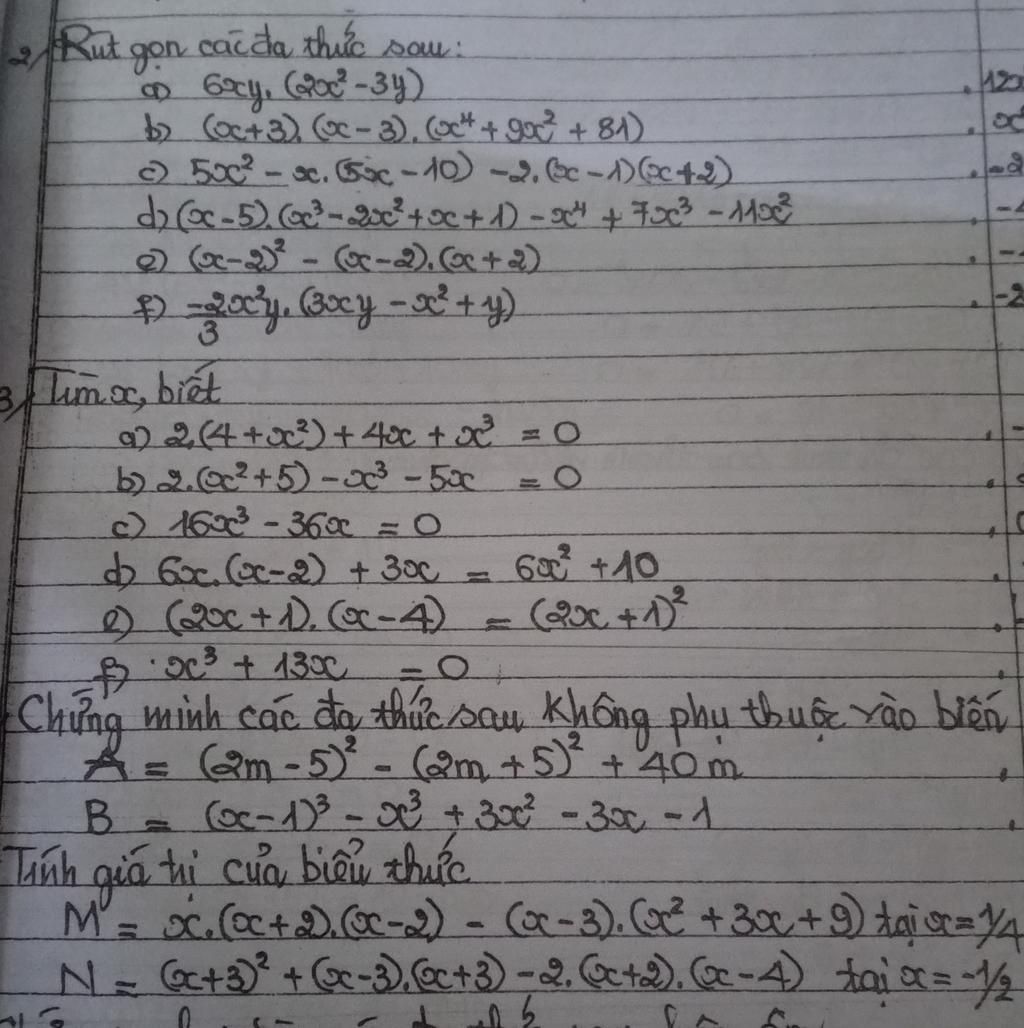 2) Rút gọn các đa thức sau:
a) 6xy. (2x² - 3y) . 12x
b) (x+3). (x-3). (x⁴ + 9x² + 81) . x
c) 5x² - x. (5x - 10) - 2. (x - 1)(x+2) . -2
d) (x-5). (x³ - 2x² + x + 1) - x⁴ + 7x³ - 11x² . -
e) (x-2)² - (x-2). (x+2) . -
f) -2/3 x²y. (3xy - x² + y) . -2
3) Tìm x, biết
a) 2.(4 + x²) + 4x + x³ = 0 . -
b) 2. (x² + 5) - x³ - 5x = 0 .
c) 16x³ - 36x = 0
d) 6x. (x-2) + 3x = 6x² + 10 .
e) (2x + 1). (x - 4) = (2x + 1)² . -
f) x³ + 13x = 0 .
Chứng minh các đa thức sau không phụ thuộc vào biến
A = (2m - 5)² - (2m + 5)² + 40m .
B = (x - 1)³ - x³ + 3x² - 3x - 1 .
Tính giá trị của biểu thức
M = x. (x+2). (x-2) - (x-3). (x² + 3x + 9) tại x = 1/4
N = (x+3)² + (x-3). (x+3) - 2. (x+2). (x-4) tại x = -1/2